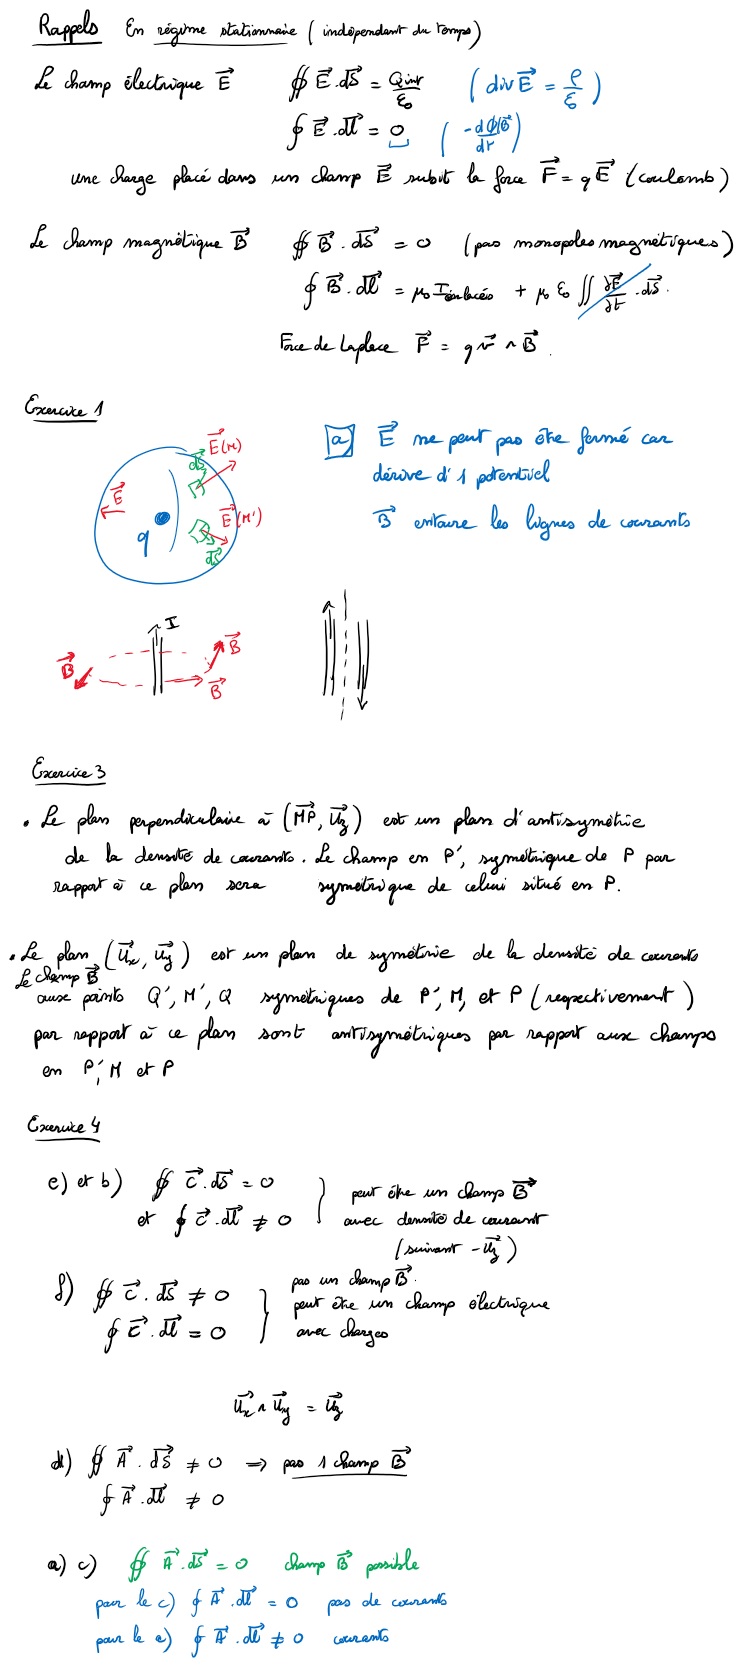 Rappels En régime stationnaire (indépendant du temps)
Le champ électrique E⃗ ∯ E⃗.dS⃗ = Qint/ε₀ (div E⃗ = ρ/ε₀)
∮ E⃗.dl⃗ = 0 (-dΦ(B⃗)/dt)
une charge placé dans un champ E⃗ subit la force F⃗ = qE⃗ (coulomb)
Le champ magnétique B⃗ ∯ B⃗.dS⃗ = 0 (pas monopoles magnétiques)
∮ B⃗.dl⃗ = μ₀ I enlacés + μ₀ ε₀ ∬ ∂E⃗/∂t .dS⃗.
Force de Laplace F⃗ = q v⃗ ∧ B⃗.
Exercice 1
a) E⃗ ne peut pas être fermé car
dérive d'1 potentiel
B⃗ entoure les lignes de courants
E⃗ q dS⃗ E⃗(M) E⃗(M') dS⃗
I B⃗ B⃗ B⃗
Exercice 3
• Le plan perpendiculaire à (MP⃗, Uz⃗) est un plan d'antisymétrie
de la densité de courants. Le champ en P', symétrique de P par
rapport à ce plan sera symétrique de celui situé en P.
• Le plan (Ux⃗, Uy⃗) est un plan de symétrie de la densité de courants
Le champ B⃗
aux points Q', M', Q symétriques de P', M, et P (respectivement)
par rapport à ce plan sont antisymétriques par rapport aux champs
en P', M et P
Exercice 4
e) et b) ∯ C⃗.dS⃗ = 0
et ∮ C⃗.dl⃗ ≠ 0
} peut être un champ B⃗
avec densité de courant
(suivant -Uz⃗)
f) ∯ C⃗.dS⃗ ≠ 0
∮ C⃗.dl⃗ = 0
} pas un champ B⃗.
peut être un champ électrique
avec charges
Ux⃗ ∧ Uy⃗ = Uz⃗
d) ∯ A⃗.dS⃗ ≠ 0 ⇒ pas 1 champ B⃗
∮ A⃗.dl⃗ ≠ 0
a) c) ∯ A⃗.dS⃗ = 0 champ B⃗ possible
pour le c) ∮ A⃗.dl⃗ = 0 pas de courants
pour le a) ∮ A⃗.dl⃗ ≠ 0 courants